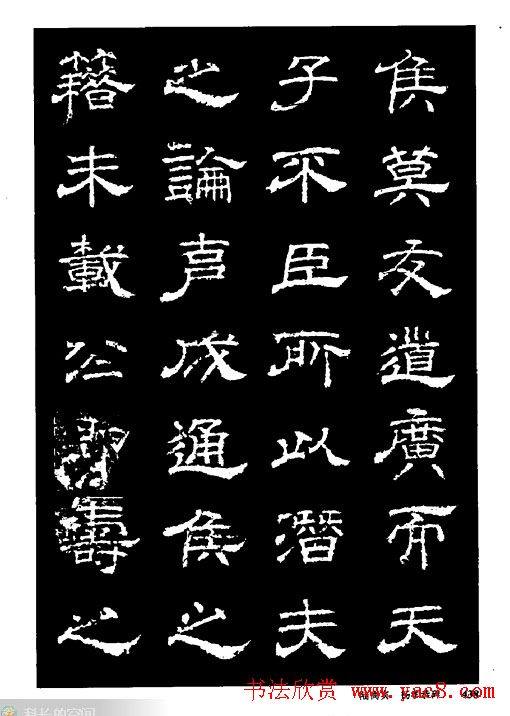 侯莫友道廣而天
子不臣所以潛夫
之論成通侯之
籍未載公即壽之
书法欣赏 www.yac8.com
科长的空间